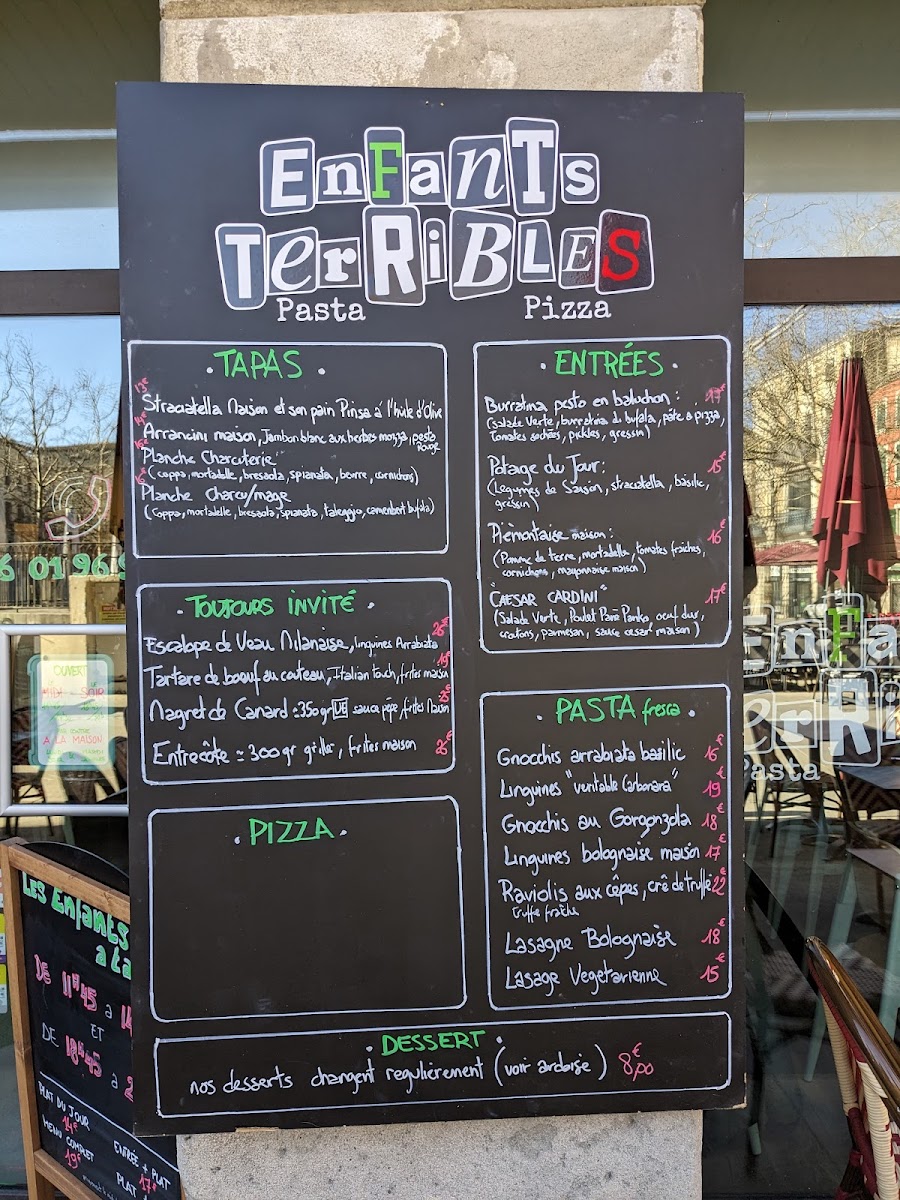 EnFanTs
TerRiBLES
Pasta
Pizza
. TAPAS .
13€
Straciatella Maison et son pain Pinsa à l'huile d'Olive
Arrancini maison, Jambon blanc aux herbes mozza, pesto
rouge
Planche Charcuterie
(coppa, mortadelle, bresaola, spianata, beurre, cornichons)
Planche Charcu/mage
(coppa, mortadelle, bresaola, spianata, taleggio, camembert bufala)
. TOUJOURS INVITÉ .
Escalope de Veau Milanaise, linguines Arrabiata
Tartare de boeuf au couteau, Italian touch, frites maison 19€
Magret de Canard : 350gr UE sauce pépé, frites Maison 25€
Entrecôte = 300gr grillé, frites maison 26€
. PIZZA .
. ENTRÉES .
Burratina pesto en baluchon : 17€
(Salade Verte, burratina di bufala, pâte à pizza,
Tomates sechées, pickles, gressin)
Potage du Jour : 15€
(Legumes de Saison, straciatella, basilic,
gressin)
Pièmontaise maison : 16€
(Pomme de terre, mortadella, tomates fraîches,
cornichons, mayonnaise maison)
"CAESAR CARDINI" 17€
(Salade Verte, Poulet Pané Panko, oeuf dur,
croutons, parmesan, sauce cesar maison)
. PASTA fresca .
Gnocchis arrabiata basilic 16€
Linguines "veritable Carbonara" 19€
Gnocchis au Gorgonzola 18€
Linguines bolognaise maison 17€
Raviolis aux cêpes, crê de truffe 22€
truffe fraîche
Lasagne Bolognaise 18€
Lasage Vegetarienne 15€
. DESSERT .
nos desserts changent regulièrement (voir ardoise) 8€,00
6 01 96
OUVERT
MIDI - SOIR
A LA MAISON
EnFa
erRi
Pasta
LES Enfants
DE 11H45 à 14
ET
DE 18H45 à 2
PLAT DU JOUR
14€
MENU COMPLET
19€
ENTRÉE + PLAT
17€
PLAT